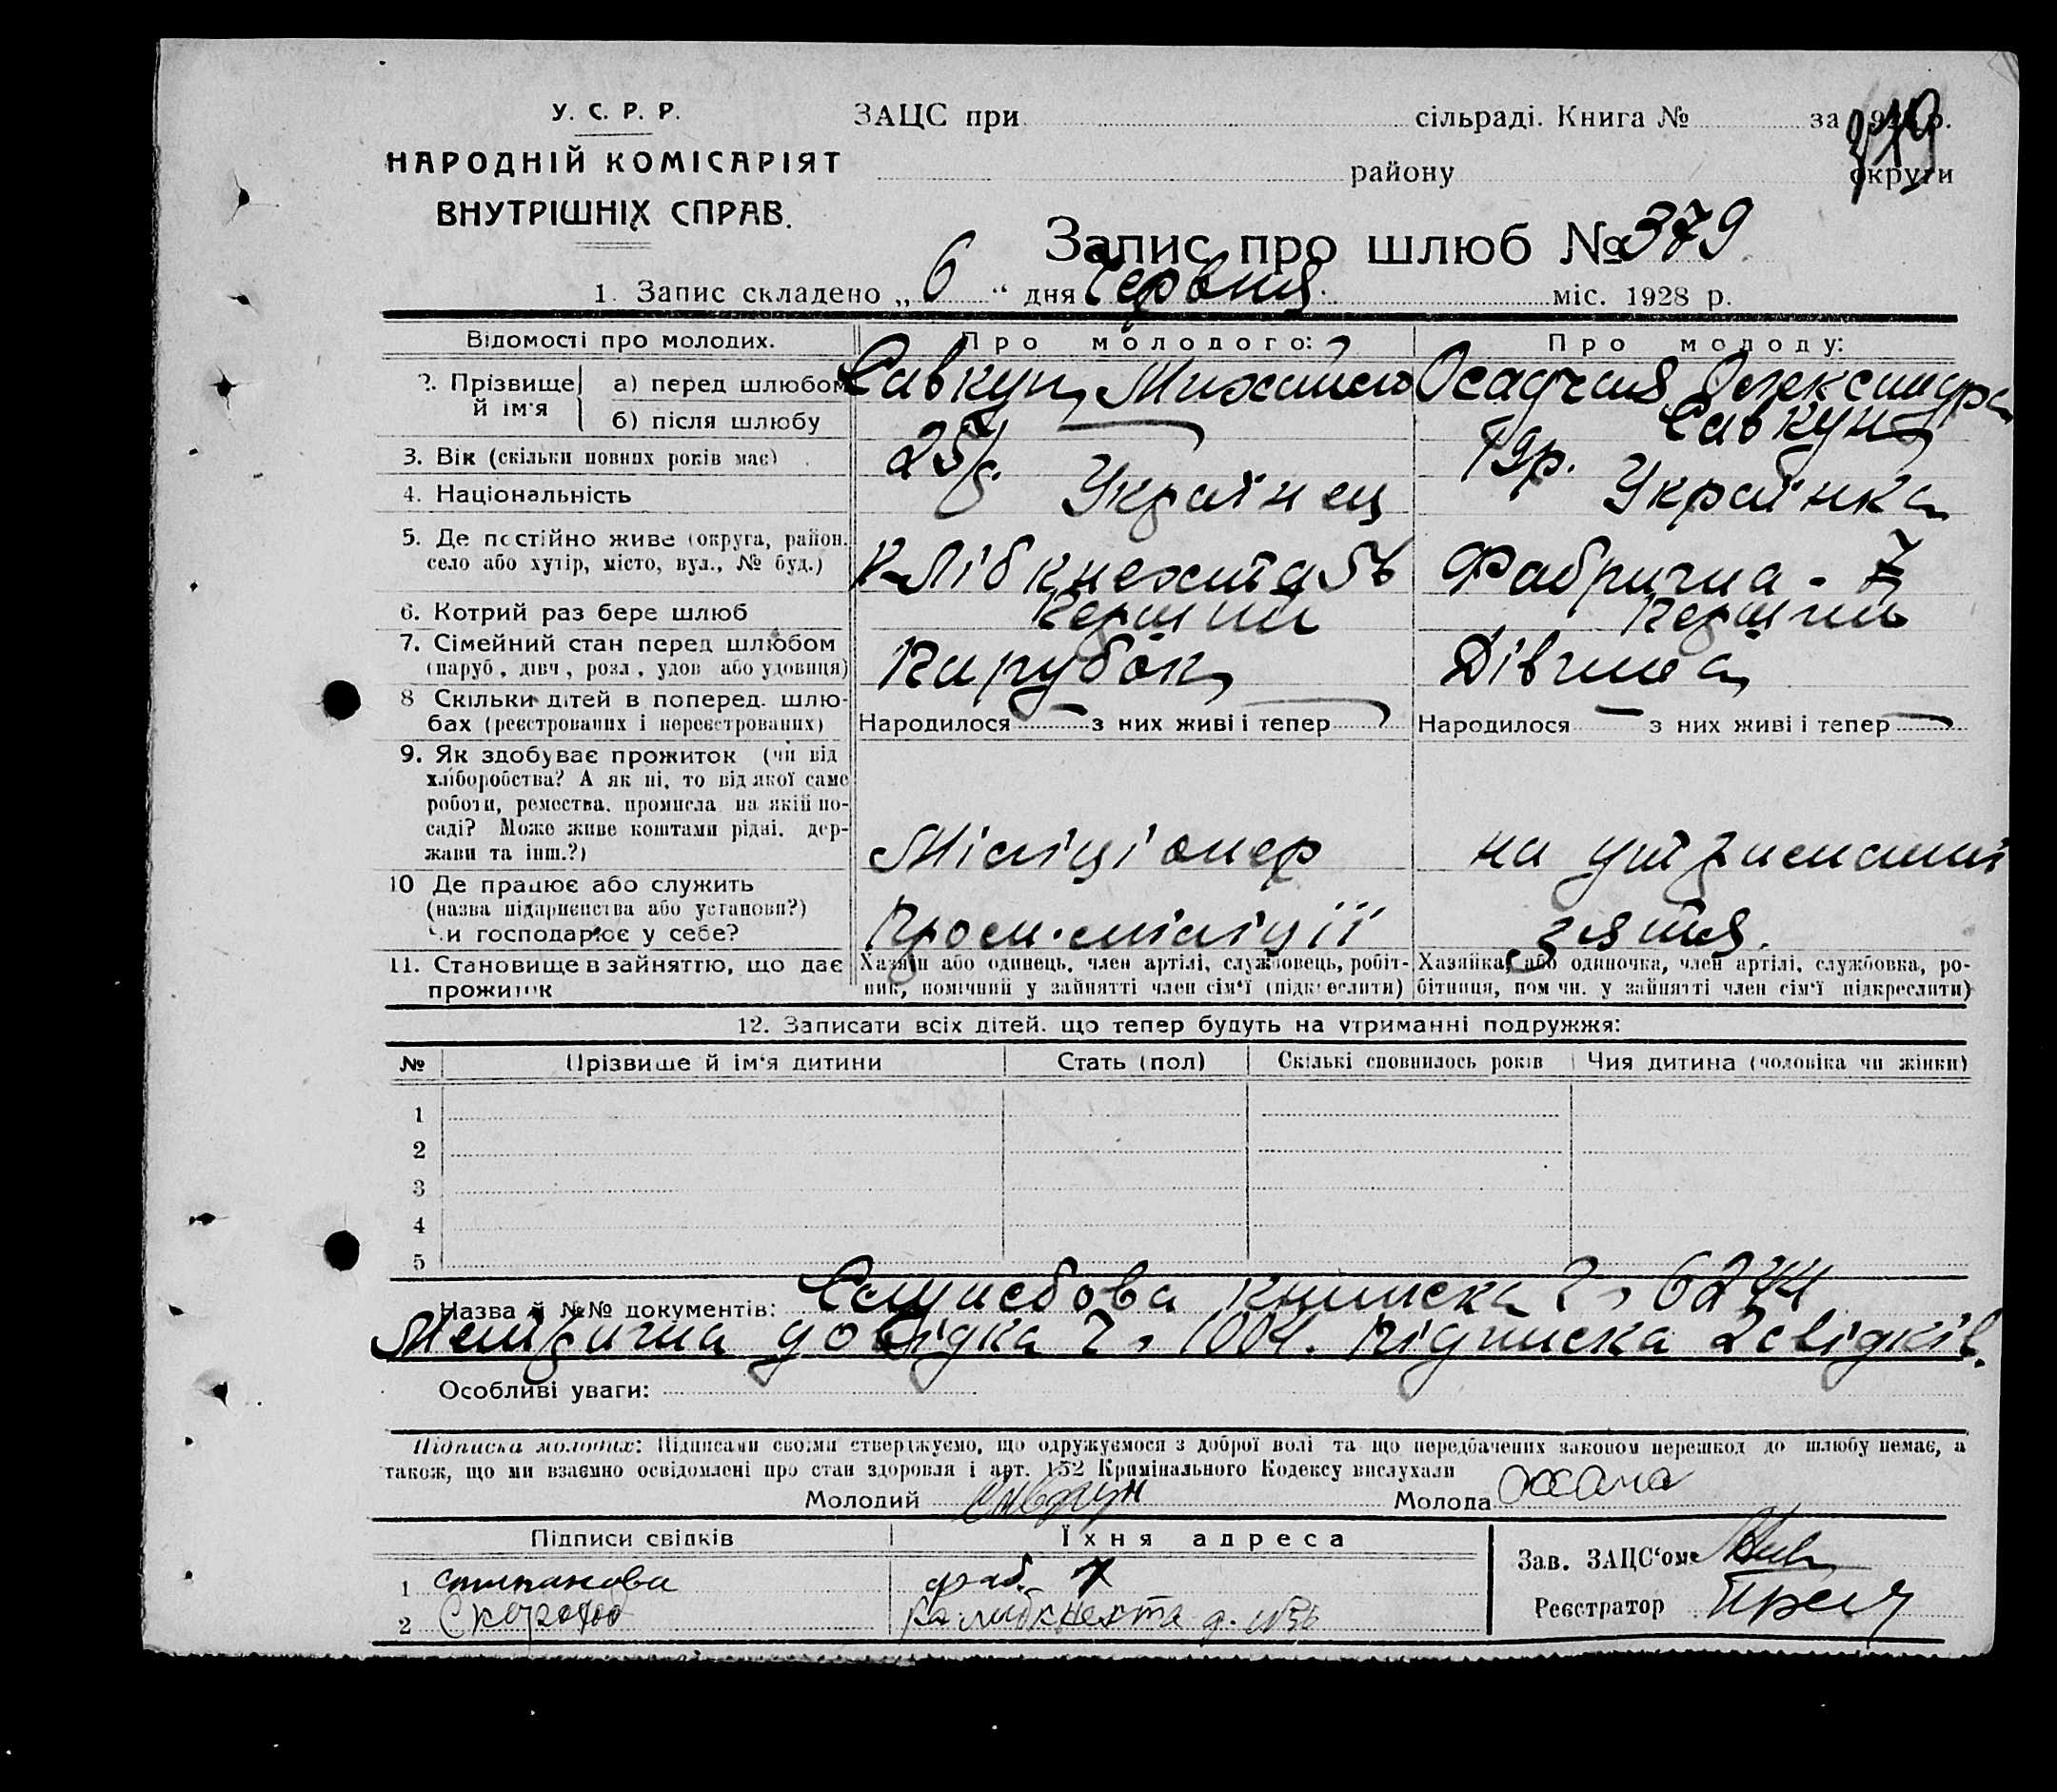 У. С. Р. Р.
НАРОДНІЙ КОМІСАРІЯТ
ВНУТРІШНІХ СПРАВ.
ЗАЦС при сільраді. Книга № за р.
району округи
Запис про шлюб № 379
1. Запис складено „ 6 “ дня Червня міс. 1928 р.
Відомості про молодих. Про молодого: Про молоду:
2. Прізвище й ім'я а) перед шлюбом Савкун Михайло Осадчая Олександра
б) після шлюбу Савкун
3. Вік (скільки повних років має) 25 19 р.
4. Національність Українец Українка
5. Де постійно живе (округа, район,
село або хутір, місто, вул., № буд.) К-Лібкнехта Фабрична - 7
6. Котрий раз бере шлюб Перший Перший
7. Сімейний стан перед шлюбом
(паруб., дівч., розл., удов. або удовиця) Парубок Дівчина
8 Скільки дітей в поперед. шлю-
бах (реєстрованих і нереєстрованих) Народилося — з них живі і тепер — Народилося — з них живі і тепер —
9. Як здобуває прожиток (чи від
хліборобства? А як ні, то від якої саме
роботи, ремества, промисла на якій по-
саді? Може живе коштами рідні, дер-
жави та інш.?) Міліціонер на утриманні
10 Де працює або служить
(назва підприємства або установи?)
Чи господарює у себе? Пром. міліції зятя.
11. Становище в зайняттю, що дає
прожиток
Хазяїн або одинець, член артілі, службовець, робіт-
ник, помічний у зайнятті член сім'ї (підкреслити)
Хазяйка, або одиночка, член артілі, службовка, ро-
бітниця, пом чн. у зайнятті член сім'ї підкреслити)
12. Записати всіх дітей, що тепер будуть на утриманні подружжя:
№ Прізвище й ім'я дитини Стать (пол) Скількі сповнилось років Чия дитина (чоловіка чи жінки)
1
2
3
4
5
Назва й №№ документів: Службова книжка ч. 6244
Метрична довідка ч. 1004. Підписка 2 свідків.
Особливі уваги:
Підписка молодих: Підписами своїми стверджуємо, що одружуємося з доброї волі та що передбачених законом перешкод до шлюбу немає, а
також, що ми взаємно освідомлені про стан здоровля і арт. 152 Кримінального Кодексу вислухали
Молодий Савкун Молода
Підписи свідків Їхня адреса
1 Степанова фаб. 7
2 Ка Либкнехта д. №
Зав. ЗАЦС'ом
Реєстратор